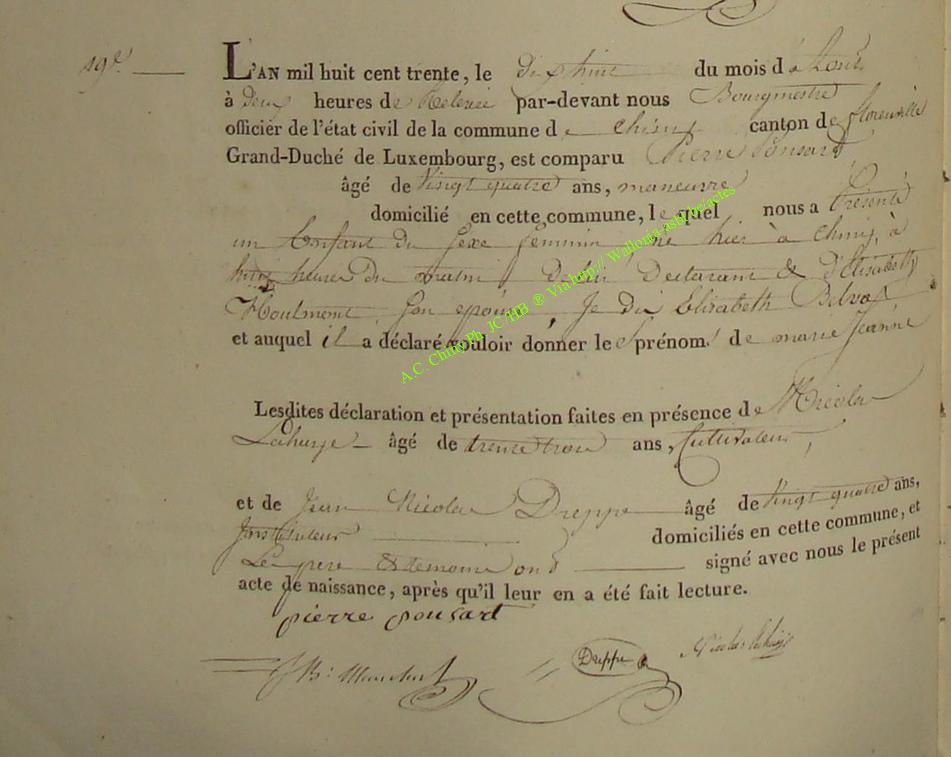 19e
L'AN mil huit cent trente, le dix huit du mois d'Août
à deux heures de Relevée par-devant nous Bourgmestre
officier de l'état civil de la commune de Chiny canton de florenville
Grand-Duché de Luxembourg, est comparu Pierre Ponsard,
âgé de Vingt quatre ans, maneuvre
domicilié en cette commune, lequel nous a Présenté
un Enfant du Sexe feminin, né hier à Chiny, à
heures du matin, de lui Declarant & d'Elisabeth
Houlmont, Son epouse, Je dis Elisabeth
et auquel il a déclaré vouloir donner les prénoms de marie Jeanne
Lesdites déclaration et présentation faites en présence de Nicolas
Lahuye âgé de trente trois ans, Cultivateur,
et de Jean Nicolas Dreppe âgé de Vingt quatre ans,
Instituteur domiciliés en cette commune, et
Le pere & temoins ont signé avec nous le présent
acte de naissance, après qu'il leur en a été fait lecture.
pierre ponsart
Dreppe Nicolas lahuye
A.C. Chiny Ph. JC HB ® Via http:// Wallonia-asbl.be/actes